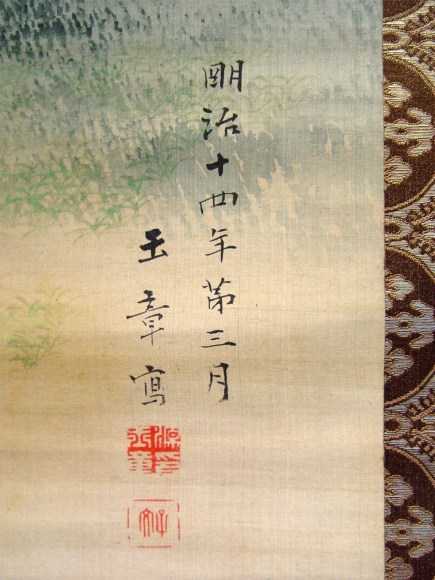 明治十四年第三月
玉章寫